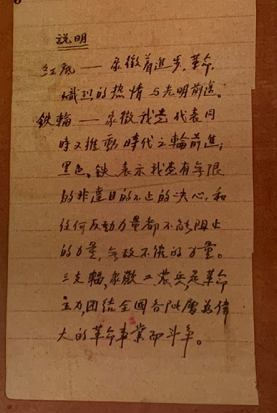 说明
红底——象徵着進步,革命,
熾烈的热情与光明前途。
鉄輪——象徵我党代表同
時又推動時代之輪前進;
黑色、鉄表示我党有無限
的非達目的不止的决心,和
任何反动力量都不能阻止
的力量,無敌不催的力量。
三支輻,象徵工農兵是革命
主力,团结全國各阶層为偉
大的革命事業而斗争。